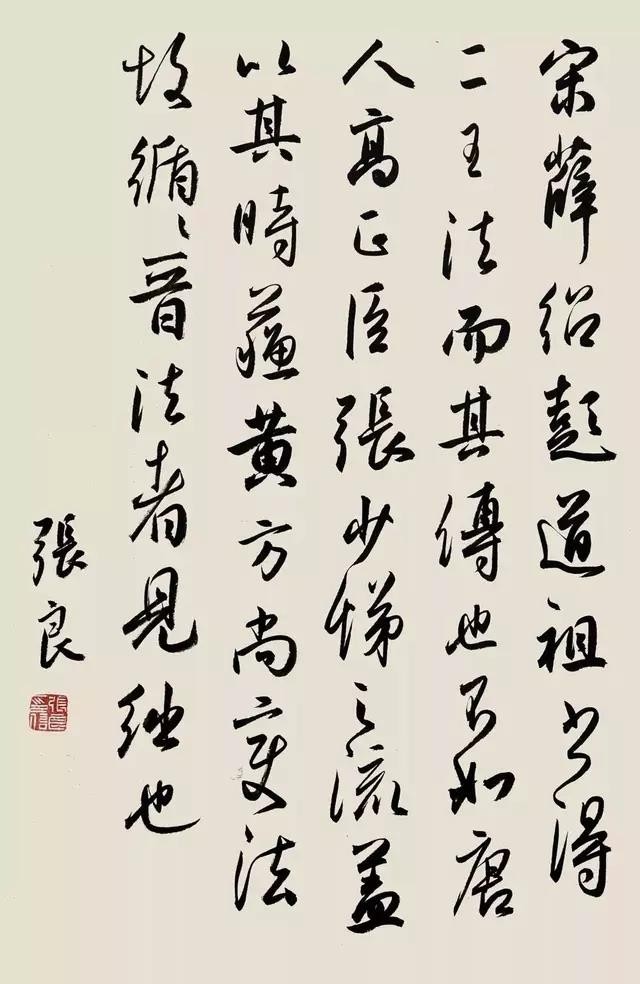 宋薛紹彭道祖书得
二王法而其傳也不如唐
人高正臣張少悌之流蓋
以其時蘇黄方尚变法
故循〻晉法者見絀也
張良